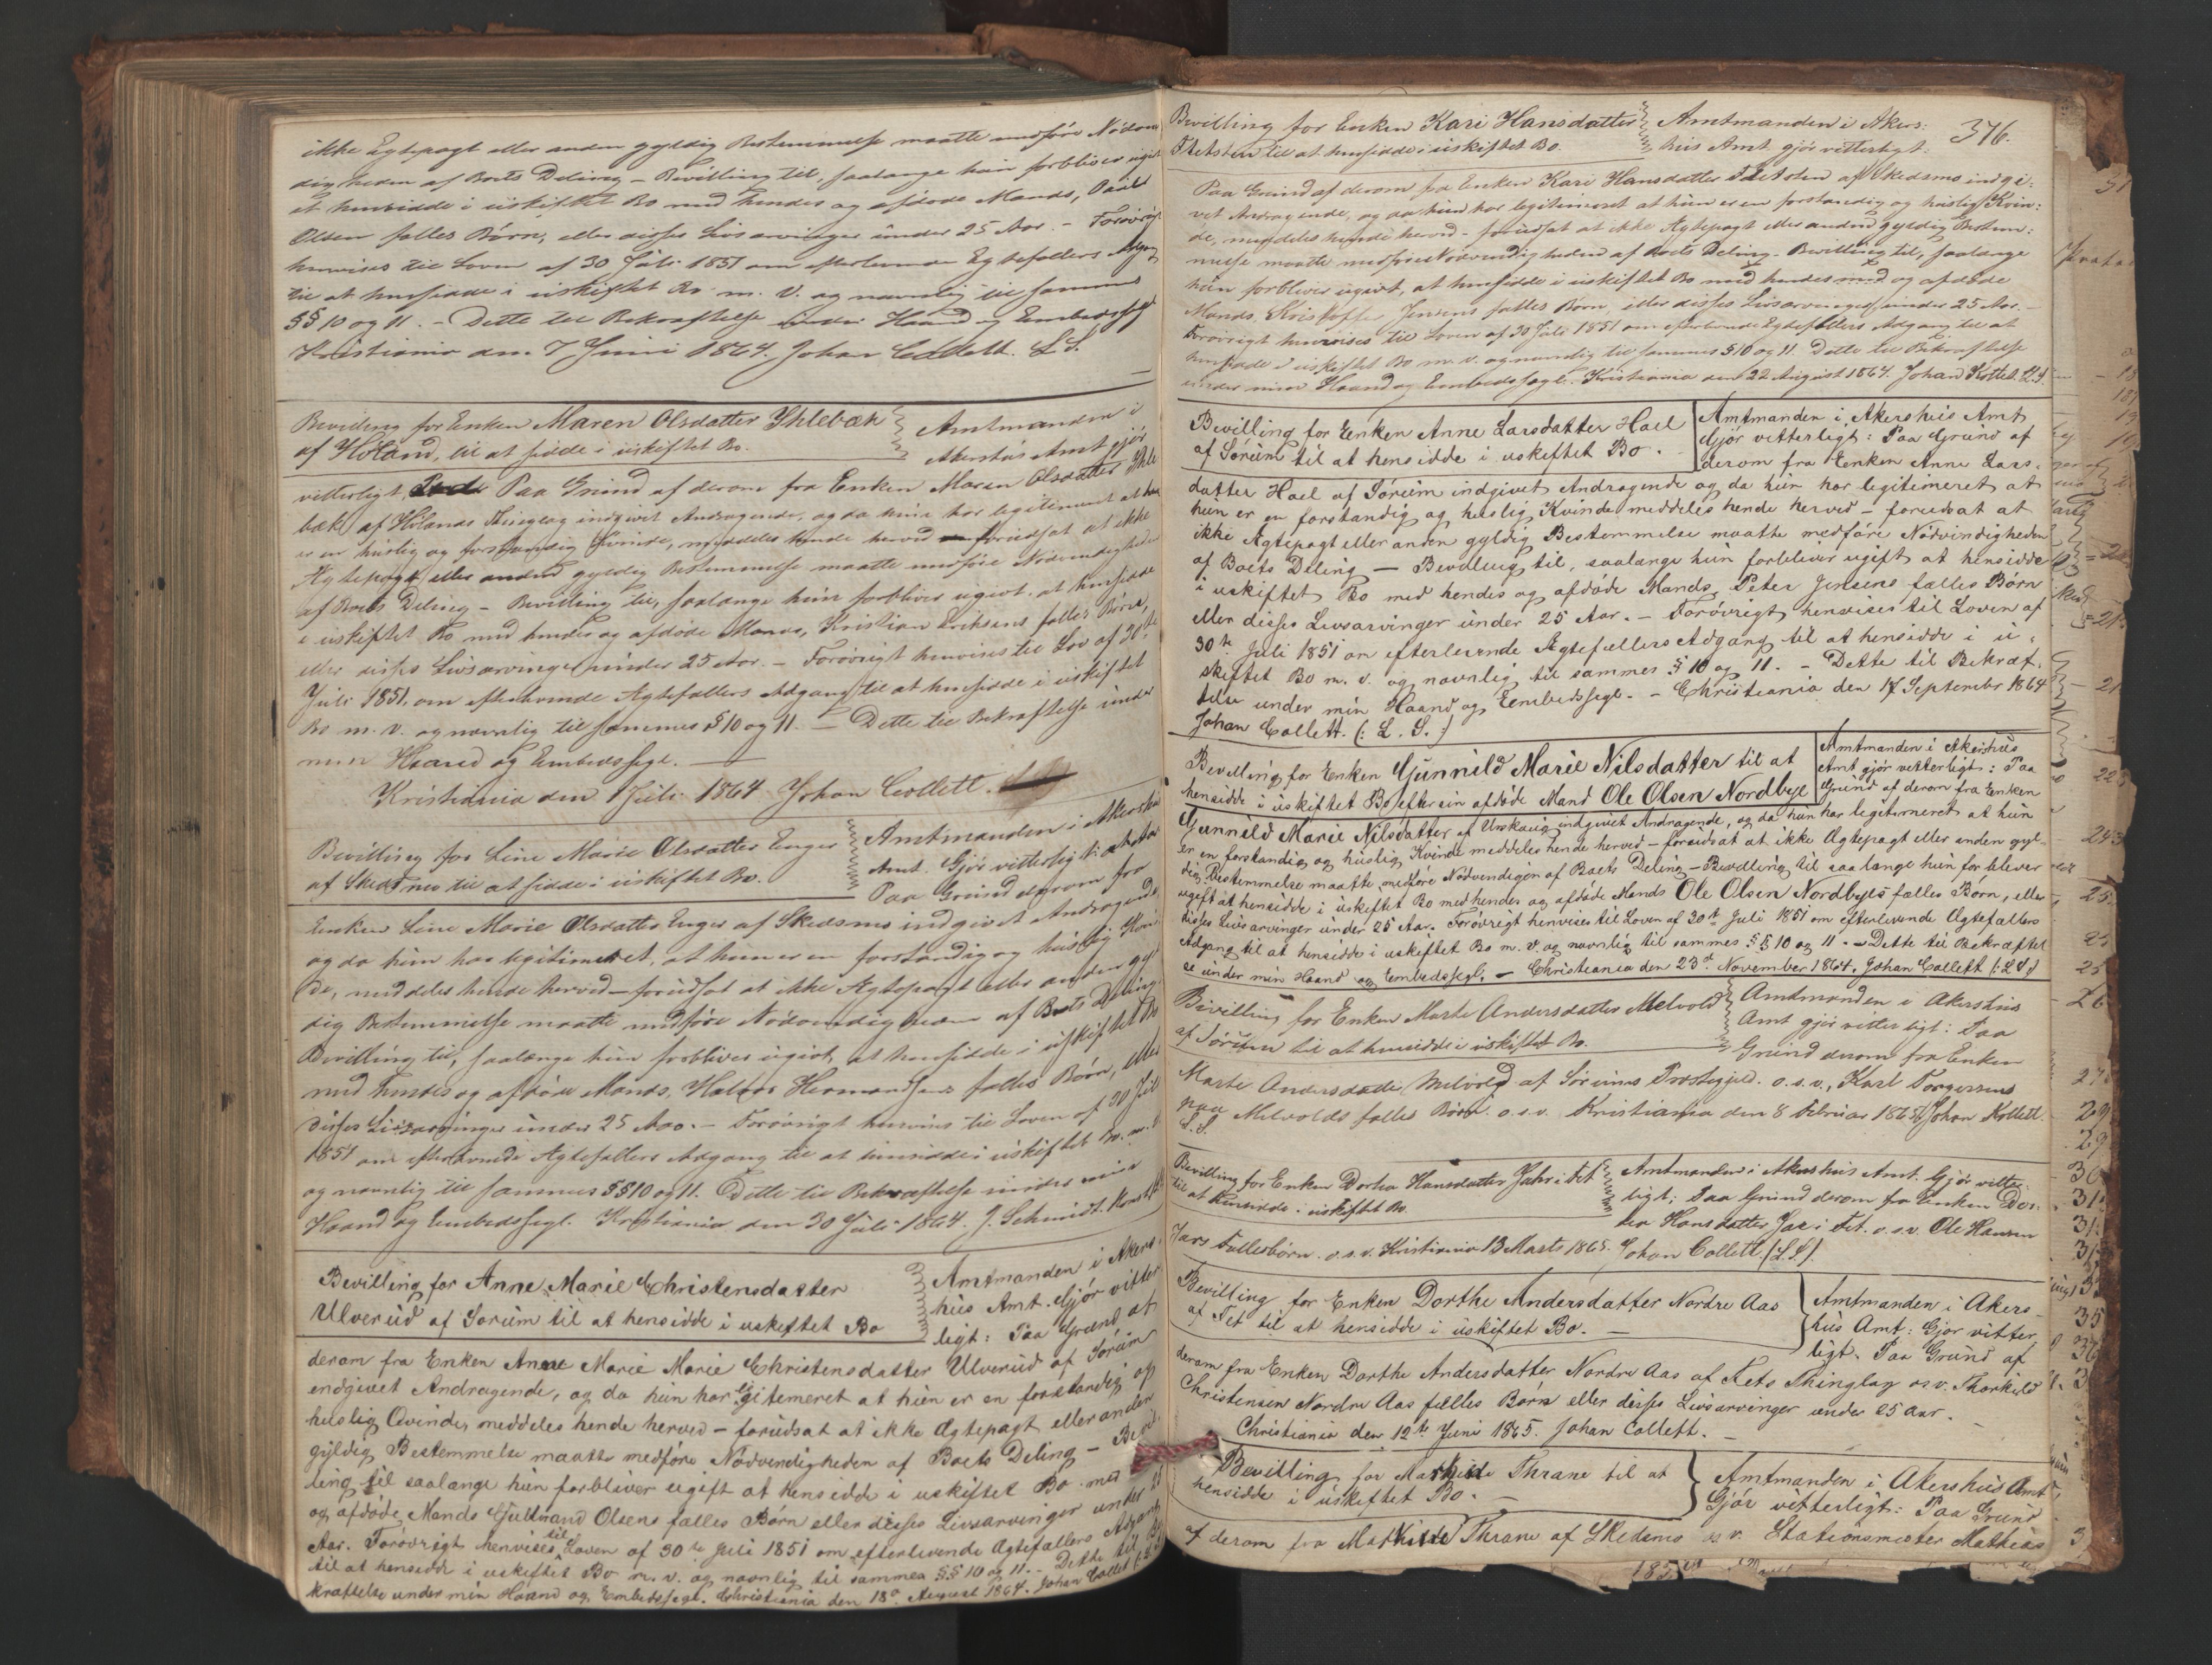 ikke Egtepagt eller anden gyldig Bestemmelse maatte medføre Nødven
digheden af Boets Deling – Bevilling til, saalænge hun forbliver ugift
at hensidde i uskiftet Bo med hendes og afdøde Mands, Paal
Olsen fælles Børn, eller disses Livsarvinger under 25 Aar. – Forøvrigt
henvises til Loven af 30 Juli 1851 om efterlevende Egtefællers Adgang
til at hensidde i uskiftet Bo m. v. og navnlig til sammes
§§ 10 og 11. – Dette til Bekræftelse under Haand og Embedssegl
Kristiania den 7 Juni 1864. Johan Collett. L S.
Bevilling for Enken Maren Olsdatter Ihlebæk
af Høland, til at sidde i uskiftet Bo.
Amtmanden i
Akershus Amt gjør
vitterligt, Paa Grund af derom fra Enken Maren Olsdatter Ihle
bæk af Hølands Thinglag indgivet Andragende, og da hun har legitimeret at hun
er en huslig og forstandig Kvinde, meddeles hende herved forudsat at ikke
Ægtepagt eller anden gyldig Bestemmelse maatte medføre Nødvendigheden
af Boets Deling – Bevilling til, saalænge hun forbliver ugivt, at hensidde
i uskiftet Bo med hendes og afdøde Mands, Kristian Eriksens fælles Børn,
eller disses Livsarvinger under 25 Aar. – Forøvrigt henvises til Lov af 30te
Juli 1851, om efterlevende Ægtefællers Adgang til at hensidde i uskiftet
Bo m. v. og navnlig til sammes § 10 og 11. – Dette til Bekræftelse under
min Haand og Embedssegl. –
Kristiania den 1 Juli 1864 Johan Collett.
Bevilling for Line Marie Olsdatter Enger
af Skedsmo til at sidde i uskiftet Bo.
Amtmanden i Akershus
Amt. Gjør vitterligt:
Paa Grund derom fra
Enken Line Marie Olsdatter Enger af Skedsmo indgivet Andragende,
og da hun har legitimeret, at hun er en forstandig og huslig Kvin
de, meddeles hende herved – forudsat at ikke Ægtepagt eller anden gyl
dig Bestemmelse maatte medføre Nødvendigheden af Boets Deling
Bevilling til, saalænge hun forbliver ugivt, at hensidde i uskiftet Bo
med hendes og afdøde Mands, Halvor Hermandsens fælles Børn, eller
disses Livsarvinger under 25 Aar. – Forøvrigt henvises til Loven af 30 Juli
1851 om efterlevende Ægtefællers Adgang til at hensidde i uskiftet Bo. m. v.
og navnlig til sammes §§ 10 og 11. Dette til Bekræftelse under min
Haand og Embedssegl. Kristiania den 30 Juli 1864. J. Schmidt. Konst.
Bevilling for Anne Marie Christensdatter
Ulverud af Sørum til at hensidde i uskiftet Bo
Amtmanden i Akers-
hus Amt. Gjør vitter
ligt: Paa Grund af
derom fra Enken Anne Marie Marie Christensdatter Ulverud af Sørum
endgivet Andragende, og da hun har legitemeret at hun er en forstandig og
huslig Qvinde, meddeles hende herved – forudsat at ikke Ægtepagt eller anden
gyldig Bestemmelse maatte medføre Nødvendigheden af Boets Deling – Bevil-
ling til saalange hun forbliver ugift at hensidde i uskiftet Bo med
og afdøde Mands Guldbrand Olsens fælles Børn eller disses Livsarvinger under 25
Aar. Forøvrigt henvises til Loven af 30te Juli 1851 om efterlevende Ægtefællers Adgang
til at hensidde i uskiftet Bo m. v. og navnlig til sammes §§ 10 og 11. – Dette til Be
kræftelse under min Haand og Embedssegl. Christiania den 18de August 1864. Johan Collett (: L S
Bevilling for Enken Kari Hansdatter
Tætsten til at hensidde i uskiftet Bo.
Amtmanden i Akers:
hus Amt gjør vitterligt:
376.
Paa Grund af derom fra Enken Kari Hansdatter Tætsten af Skedsmo indgi:
vet Andragende, og da hun har legitimeret at hun er en forstandig og huslig Kvin:
de, meddeles hende herved – forudsat at ikke Ægtepagt eller anden gyldig Bestem:
melse maatte medføre Nødvendigheden af Boets Deling – Bevilling til, saalange
hun forbliver ugivt, at hensidde i uskiftet Bo med hendes med og afdøde
Mands, Kristoffer Jensens fælles Børn, eller disses Livsarvinger under 25 Aar. –
Forøvrigt henvises til Loven af 30 Juli 1851 om efterlevende Egtefællers Adgang til at
hensidde i uskiftet Bo m. v. og navnlig til sammes § 10 og 11. Dette til Bekræftelse
under min Haand og Embedssegl. Kristiania den 22 August 1864. Johan Kollet. L.S.
Bevilling for Enken Anne Larsdatter Hael
af Sørum til at hensidde i uskiftet Bo.
Amtmanden i Akershus Amt
Gjør vitterligt: Paa Grund af
derom fra Enken Anne Lars-
datter Hael af Sørum indgivet Andragende og da hun har legitimeret at
hun er en forstandig og huslig Kvinde meddeles hende herved – forudsat at
ikke Ægtepagt eller anden gyldig Bestemmelse maatte medføre Nødvindigheden
af Boets Deling – Bevilling til, saalænge hun forbliver ugift at hensidde
i uskiftet Bo med hendes og afdøde Mands, Peter Jensens fælles Børn
eller disses Livsarvinger under 25 Aar. – Forøvrigt henvises til Loven af
30te Juli 1851 om efterlevende Ægtefællers Adgang til at hensidde i u-
skiftet Bo m. v. og navnlig til sammes § 10 og 11. – Dette til Bekræf-
telse under min Haand og Eembedssegl. – Christiania den 17 September 1864
Johan Collett. (: L. S. :)
Bevilling for Enken Gunnild Marie Nilsdatter til at
hensidde i uskiftet Bo efter sin afdøde Mand Ole Olsen Nordbye
Amtmanden i Akershus
Amt gjør vitterligt: Paa
Grund af derom fra Enken
Gunnild Marie Nilsdatter af Urskoug indgivet Andragende, og da hun har legitimeret at hun
er en forstandig og huslig Kvinde meddeles hende herved – forudsat at ikke Ægtepagt eller anden gyl-
dig Bestemmelse maatte medføre Nødvendigen af Boets Deling – Bevilling til saa lange hun forblever
ugift at hensidde i uskiftet Bo med hendes og afdøde Mands Ole Olsen Nordbyes fælles Børn, eller
disses Livsarvinger under 25 Aar. Forøvrigt henvises til Loven af 30te Juli 1851 om efterlevende Ægtefællers
Adgang til at hensidde i uskiftet Bo m. v. og navnlig til sammes §§ 10 og 11. – Dette til Bekræftel
se under min Haand og Eembedssegl. – Christiania den 23de November 1864. Johan Collett (: L S :)
Bevilling for Enken Marte Andersdatter Melvold
af Sørum til at hensidde i uskiftet Bo.
Amtmanden i Akershus
Amt gjør vitterligt: Paa
Grund derom fra Enken
Marte Andersdatter Melvold af Sørums Prestegjeld. o. s. v., Karl Torgersens
paa Melvolds fælles Børn. o. s. v. Kristiania den 8 Februar 1865. Johan Kollett
L. S.
Bevilling for Enken Dortea Hansdatter Jahr i Fet
til at hensidde i uskiftet Bo.
Amtmanden i Akershus Amt. Gjør vitter
ligt: Paa Grund derom fra Enken Dor-
tea Hansdatter Jar i Fet. o. s. v. Ole Hansen
Jars Fællesbørn. o. s. v. Kristiania 13 Marts 1865. Johan Collett. (L. S.)
Bevilling for Enken Dorthe Andersdatter Nordre Aas
af Fet til at hensidde i uskiftet Bo. –
Amtmanden i Akers-
hus Amt: Gjør vitter
ligt. Paa Grund af
derom fra Enken Dorthe Andersdatter Nordre Aas af Fets Thinglag osv. Thorkild
Christensen Nordre Aas fælles Børn eller disses Livsarvinger under 25 Aar. –
Christiania den 12te Juni 1865. Johan Collett. –
Bevilling for Mathilde Thrane til at
hensidde i uskiftet Bo. –
Amtmanden i Akershus Amt
Gjør vitterligt: Paa Grund
af derom fra Mathilde Thrane af Skedsmo osv. Stationsmester Mathias